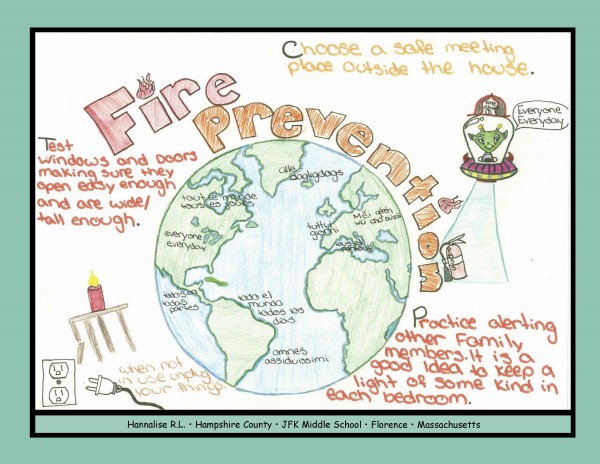 Choose a safe meeting
place outside the house.
Fire
Prevention
Everyone
Everyday
Test
windows and Doors
making sure they
open easy enough
and are wide/
tall enough.
Alle
dagligdags
tout le monde
tous les jours
everyone
everyday
tutti
giorni
todos
todas
partes
todo el
mundo
todos los
días
omnes
assiduissimi
Practice alerting
other Family
members. It is a
good Idea to keep a
light of some kind in
each bedroom.
when not
in use unplug
your things.
Hannalise R.L. • Hampshire County • JFK Middle School • Florence • Massachusetts